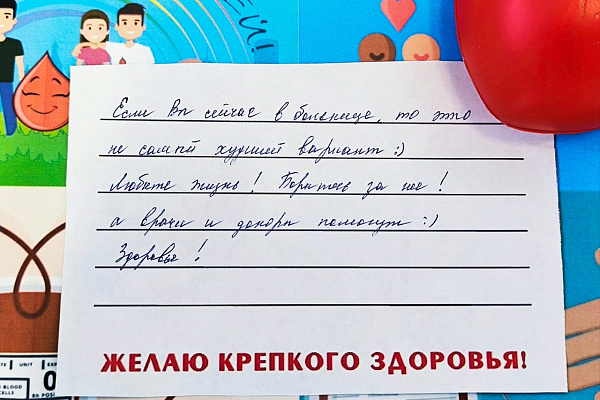 ЕЙ!
Если Вы сейчас в больнице, то это
не самый худший вариант :)
Любите жизнь! Боритесь за нее!
а врачи и доноры помогут :)
Здоровья!
ЖЕЛАЮ КРЕПКОГО ЗДОРОВЬЯ!
UNIT
BLOOD
CELLS
0
Rh POSI